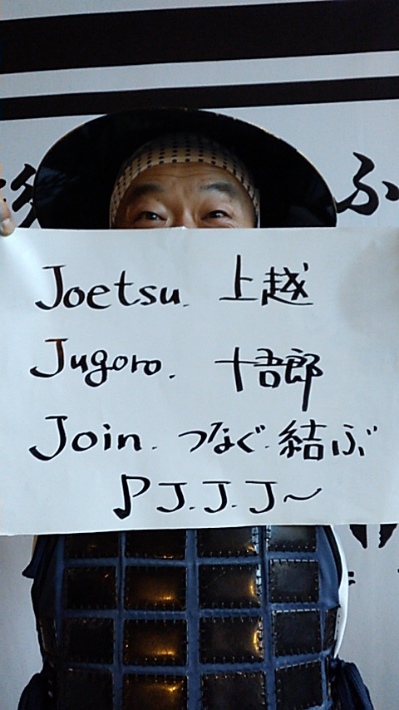 ふ
Joetsu. 上越
Jugoro. 十吾郎
Join. つなぐ. 結ぶ
♪J.J.J～